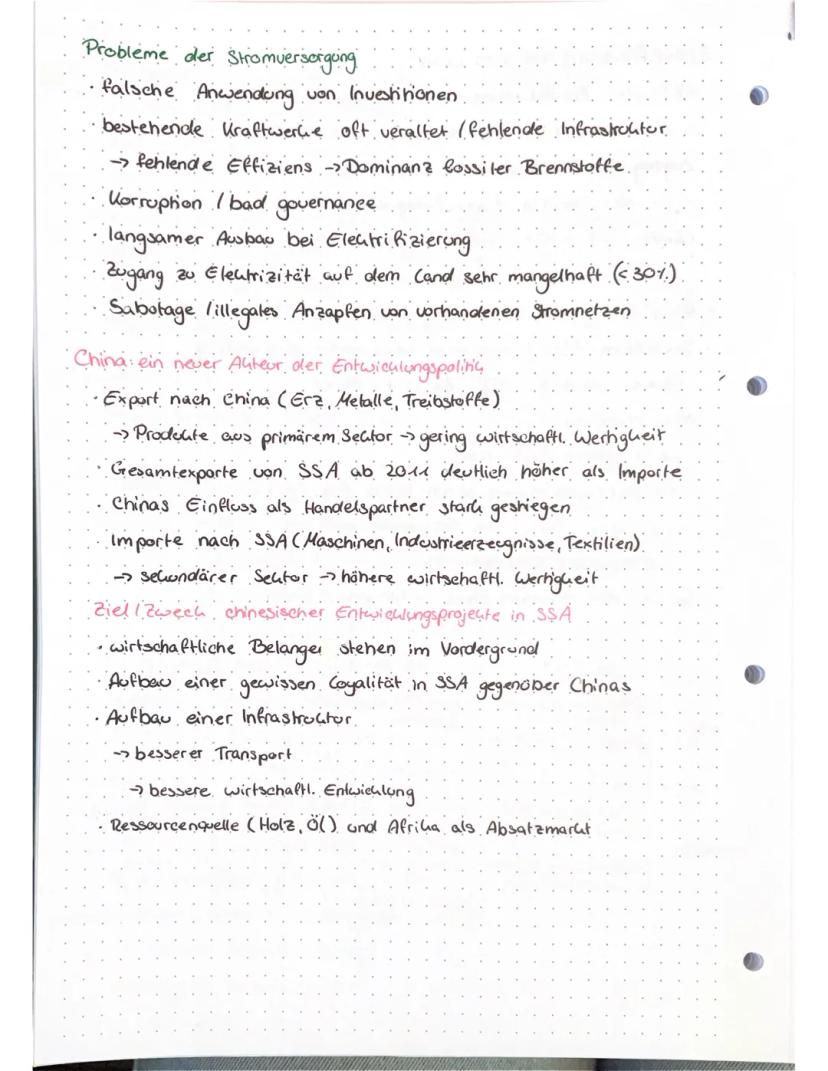 Probleme der Stromversorgung
· falsche Anwendung von Investitionen
· bestehende Kraftwerke oft veraltet / fehlende Infrastruktur
→ fehlende Effiziens → Dominanz fossiler Brennstoffe
· Korruption / bad governance
· langsamer Ausbau bei Elektrifizierung
· Zugang zu Elektrizität auf dem Land sehr mangelhaft (<30%)
· Sabotage / illegales Anzapfen von vorhandenen Stromnetzen
China: ein neuer Akteur der Entwicklungspolitik
· Export nach China (Erz, Metalle, Treibstoffe)
→ Produkte aus primärem Sektor → gering wirtschaftl. Wertigkeit
· Gesamtexporte von SSA ab 2011 deutlich höher als Importe
· Chinas Einfluss als Handelspartner stark gestiegen
· Importe nach SSA (Maschinen, Industrieerzeugnisse, Textilien)
→ sekundärer Sektor → höhere wirtschaftl. Wertigkeit
Ziel / Zweck chinesischer Entwicklungsprojekte in SSA
· wirtschaftliche Belange stehen im Vordergrund
· Aufbau einer gewissen Loyalität in SSA gegenüber Chinas
· Aufbau einer Infrastruktur
→ besserer Transport
→ bessere wirtschaftl. Entwicklung
· Ressourcenquelle (Holz, Öl) und Afrika als Absatzmarkt